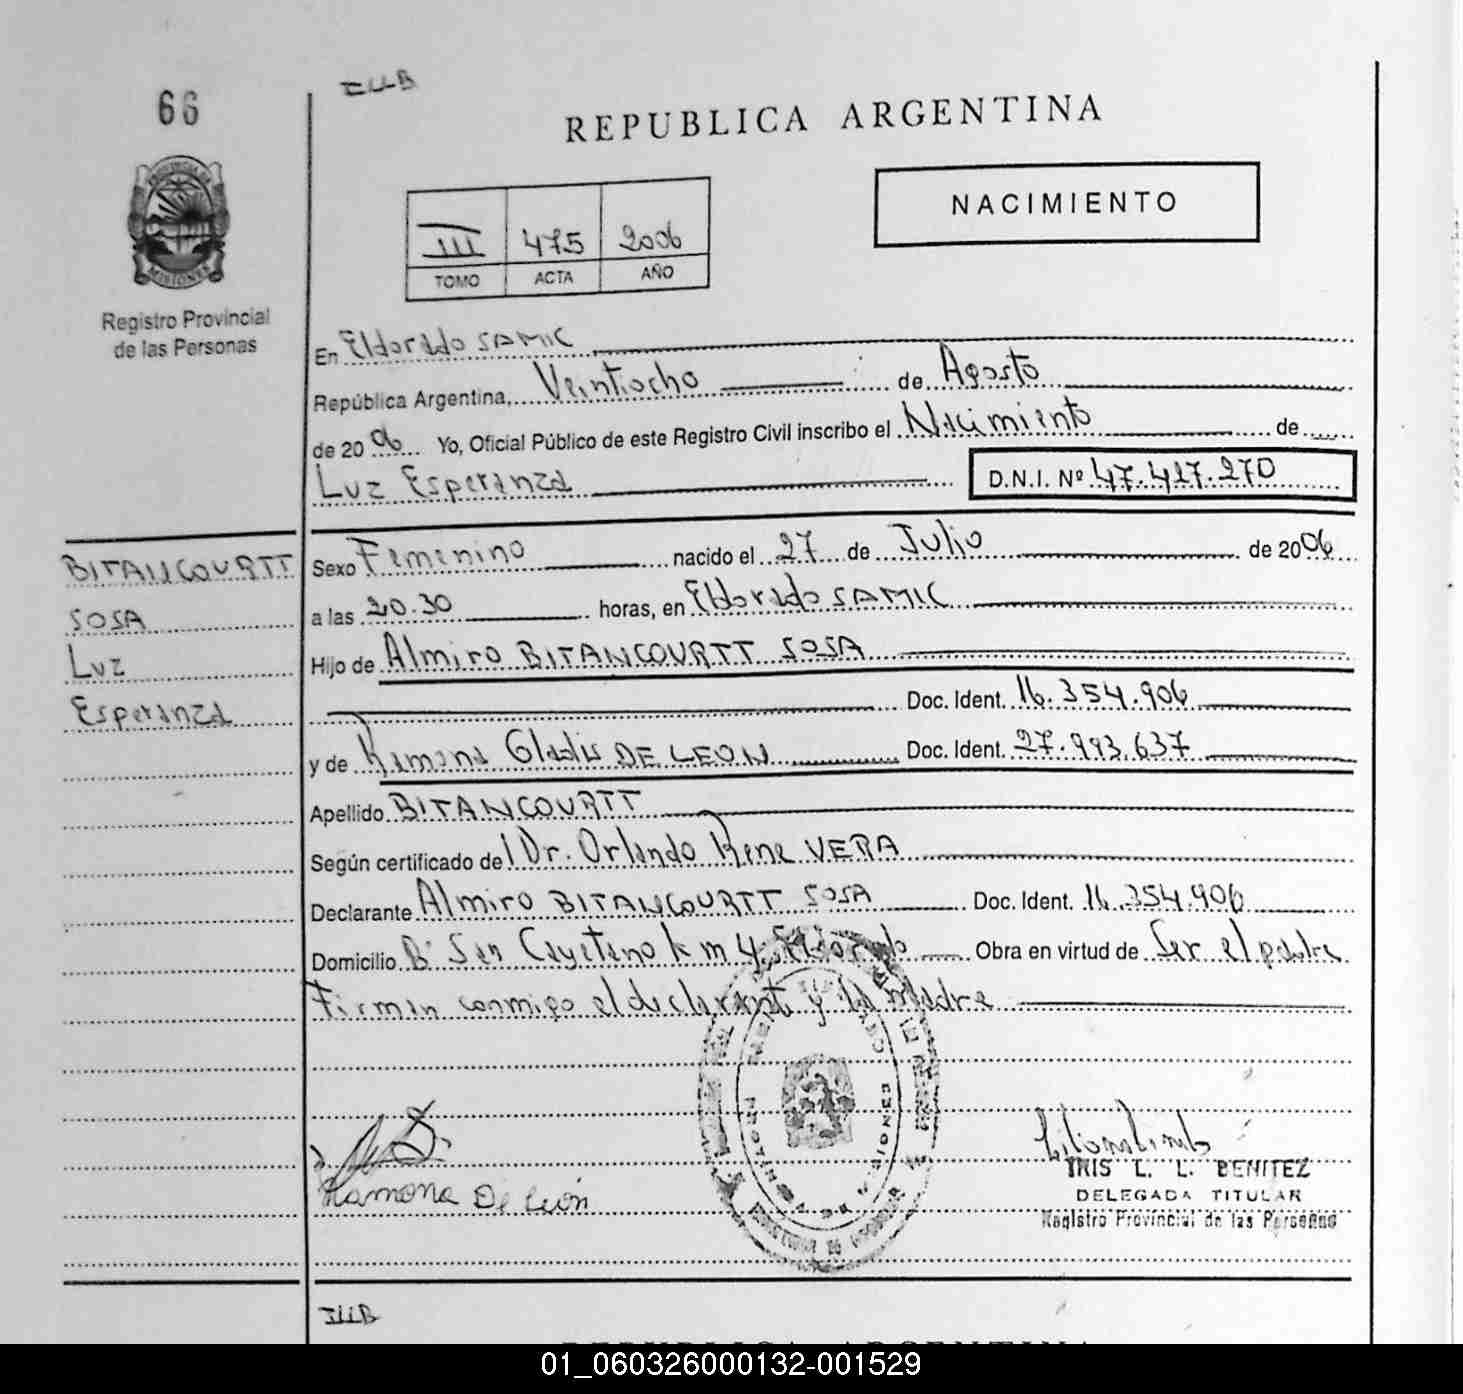 66
ILLB
REPUBLICA ARGENTINA
PROVINCIA DE
MISIONES
NACIMIENTO
III 475 2006
TOMO ACTA AÑO
Registro Provincial
de las Personas
En Eldorado SAMIC
República Argentina, Veintiocho de Agosto
de 2006 Yo, Oficial Público de este Registro Civil inscribo el Nacimiento de
Luz Esperanza D.N.I. Nº 47.427.270
BITANCOURTT
SOSA
Luz
Esperanza
Sexo Femenino nacido el 27 de Julio de 2006
a las 20.30 horas, en Eldorado SAMIC
Hijo de Almiro BITANCOURTT SOSA
Doc. Ident. 16.354.906
y de Ramona Gladis DE LEON Doc. Ident. 27.993.637
Apellido BITANCOURTT
Según certificado del Dr. Orlando Rene VERA
Declarante Almiro BITANCOURTT SOSA Doc. Ident. 16.354.906
Domicilio Bº San Cayetano km 4, Eldorado Obra en virtud de Ser el padre
Firman conmigo el declarante y la Madre
Ramona De León
IRIS L. L. BENITEZ
DELEGADA TITULAR
Registro Provincial de las Personas
ILLB
REPUBLICA ARGENTINA
01_060326000132-001529